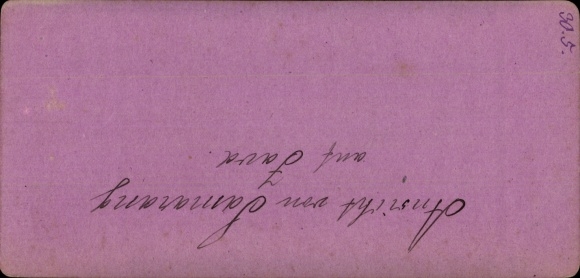 Ansicht von Samarang
auf Java.
90.5.